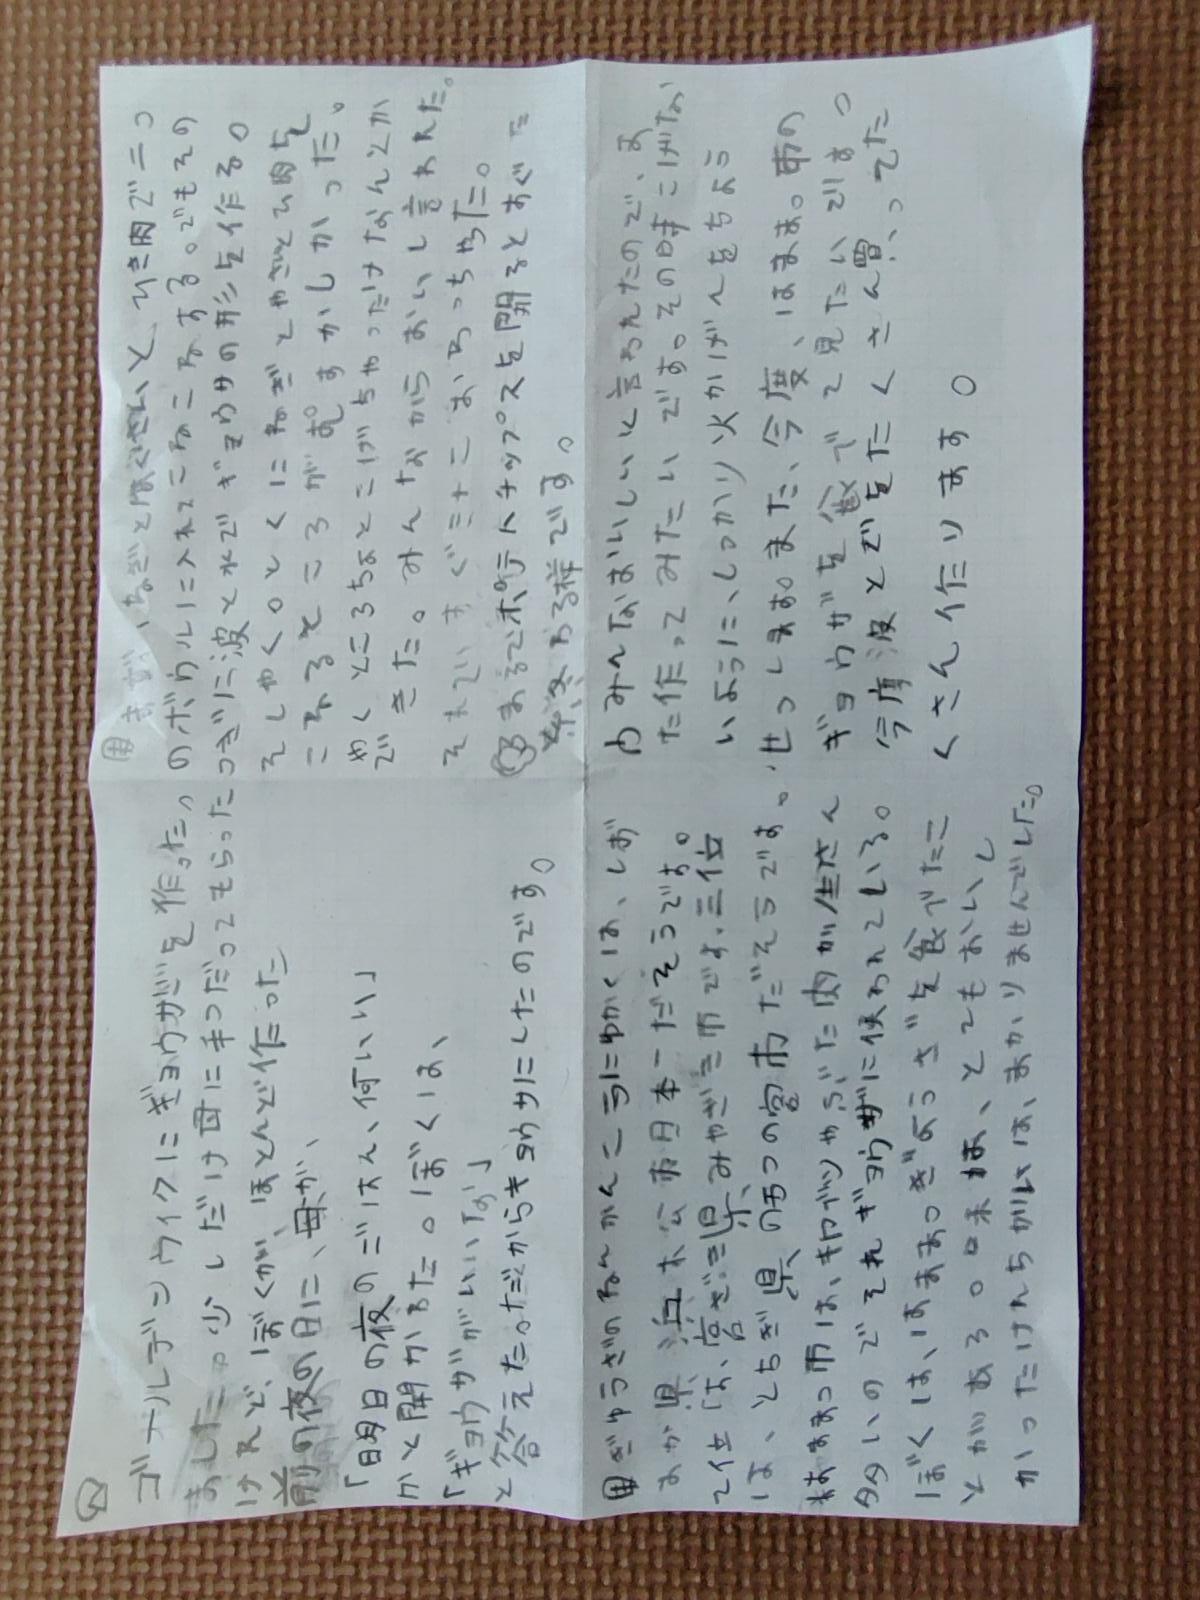 ゴールデンウィクにギョウザを作った。
ましたっ少しだけ母に手つだってもらった
けれど、ぼくが、ほとんど作った
前の夜の日に、母が、
「明日の夜のごはん、何いい」
かと聞かるた。ぼくは、
「ギョウザがいいな」
と答えたっだからギョウザにしたのです。
まず、ねぎとはくさいと、ひき肉で二つ
のボウルに入れてこねこねする。でもその
つぎに波とれでギョウサの形を作る。
そしやく。とくにねぎとやさいと肉を
こねるところがむずかしかった。
やくところちょとこげちゃったけなんとか
できた。みんなからおいし言われた。
それですぐ三十こはちっちゃった。
まるでポテトチップスを開るとすぐた
なる様です。
ぎゅうざのねんかんこうにゅがくは、しず
おか県浜松市日本一だそうです。
2位は、宮ざき県みやざき市です。三位
は、とちぎ県のうつの宮市だそうです。
はままつ市は、キャベツやぶた肉が生さん
多いのでそれギョウザに使われている。
ぼくは、はままつぎょうざを食べたこ
とがある。日末は、とてもおいし
かったけんちがいは、あかりませんでした。
みんなおいしいに言われたので、ま
た作ってみたいです。その時こげな
いように、しっかり火かげんをちょう
せっします。また、今度、はまま。市の
ギョウザを食べて見たいです。
今度波とでをたくさん買ってた
くさん作ります。